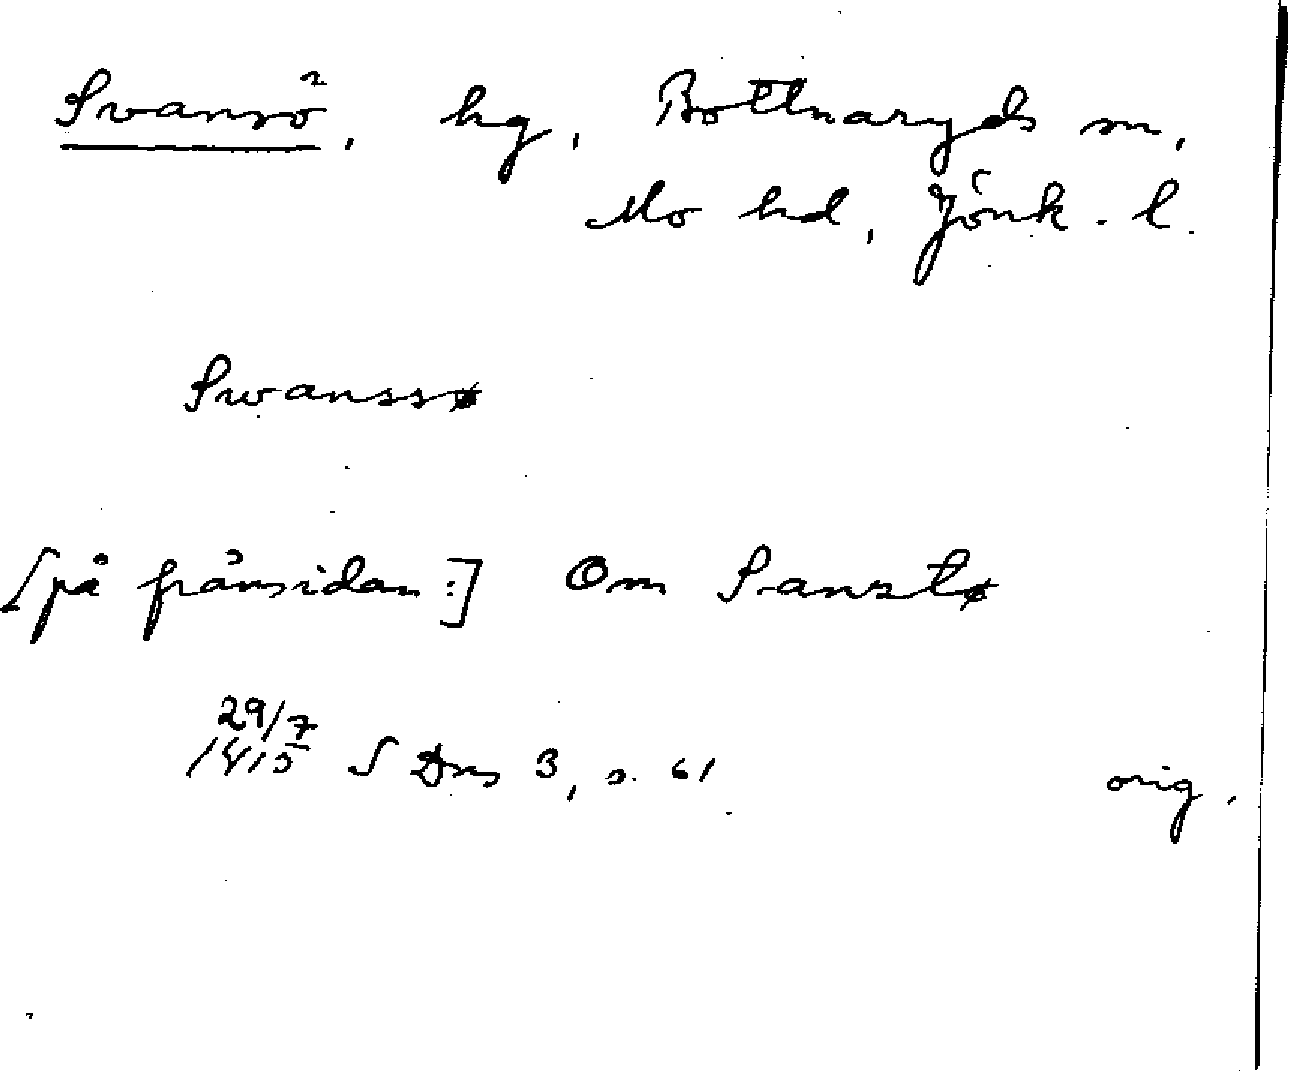 Svansö, hg, Bottnaryds sn,
Mo hd, Jönk. l.
Swanssø
[på främsidan:] Om Sanstø
29/7
1415 S Dns 3, s. 61 orig.